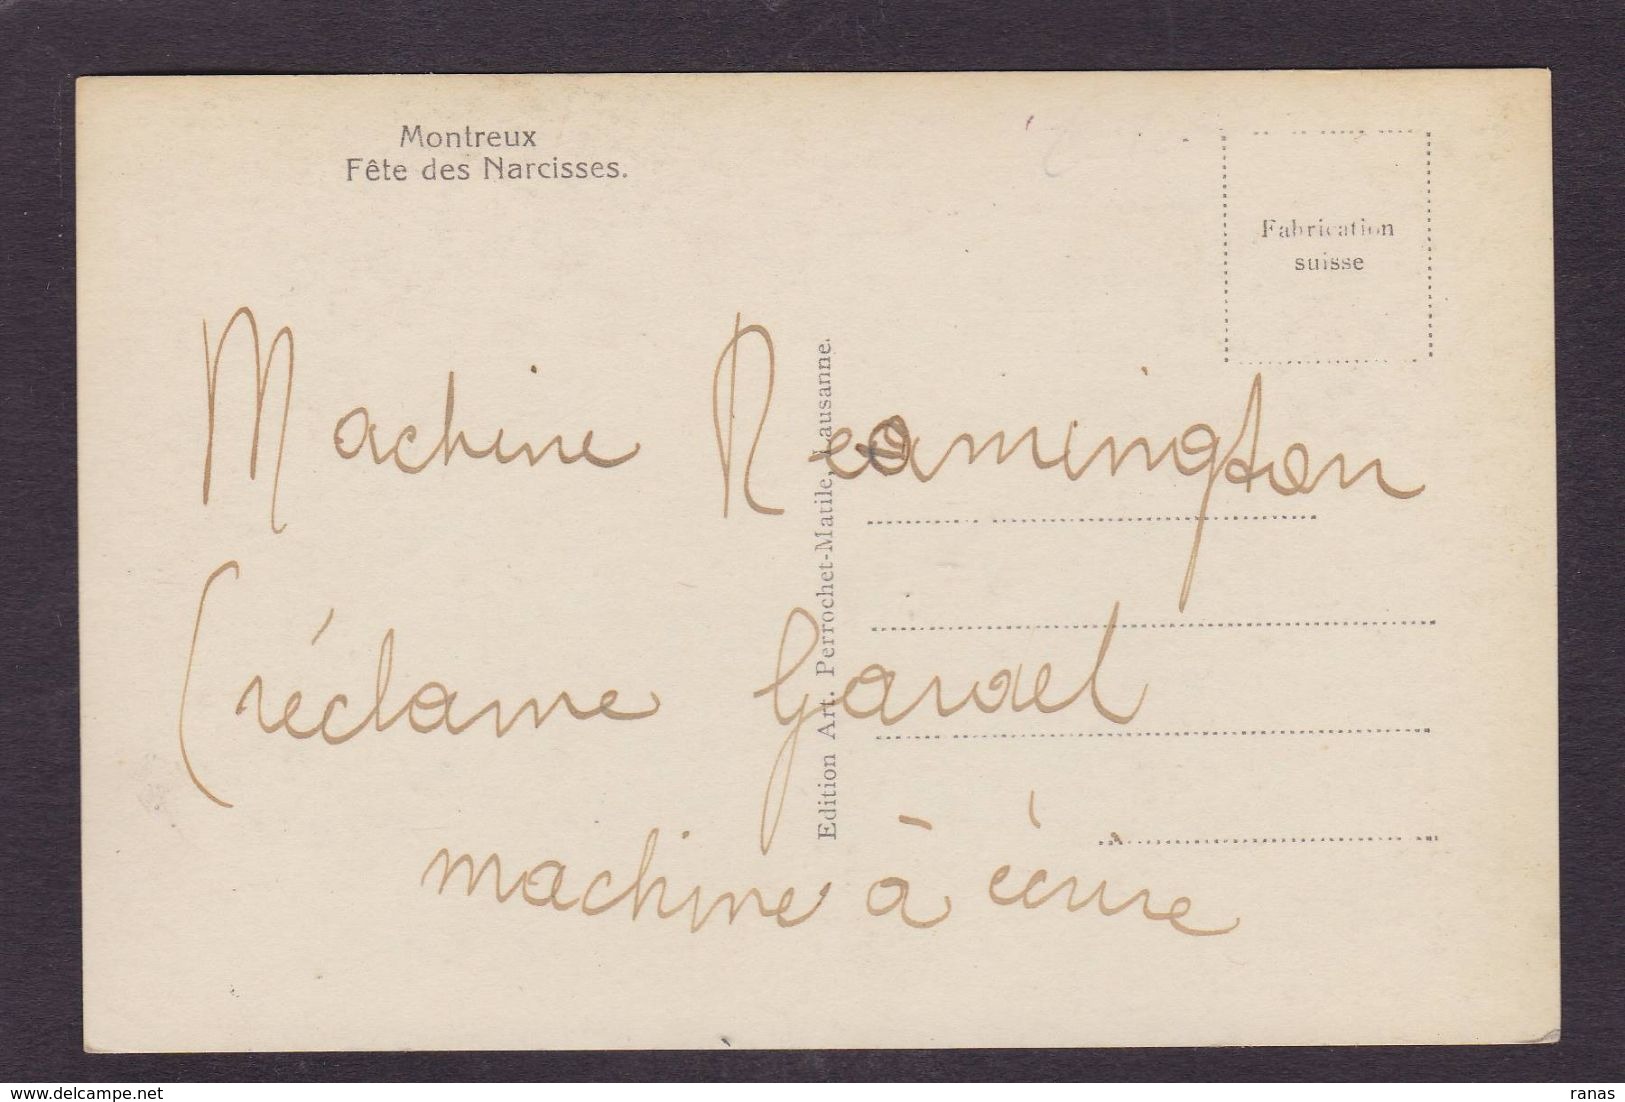 Montreux
Fête des Narcisses.
Fabrication
suisse
Machine Reamington
(réclame Gardel
machine à écrire
Edition Art. Perrochet-Matile, Lausanne.
www.delcampe.net
ranas